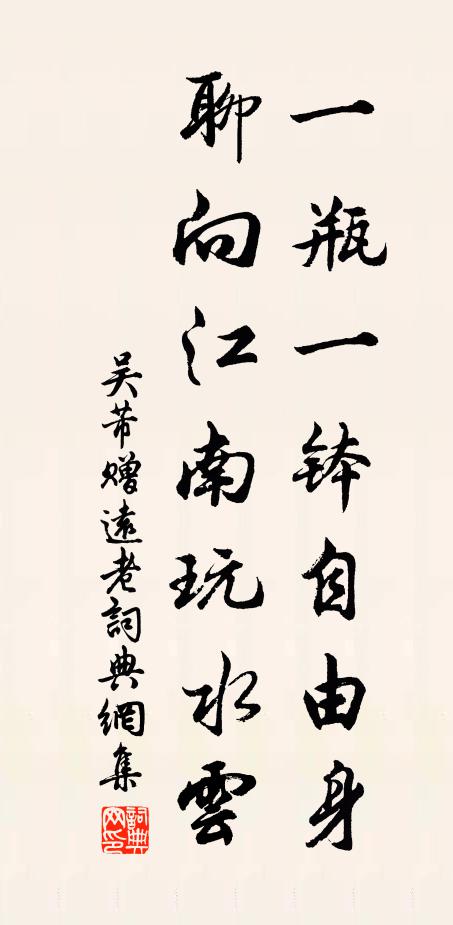 一瓶一鉢自由身
聊向江南玩水雲
吳芾贈遠老詞典網集
詞典网印